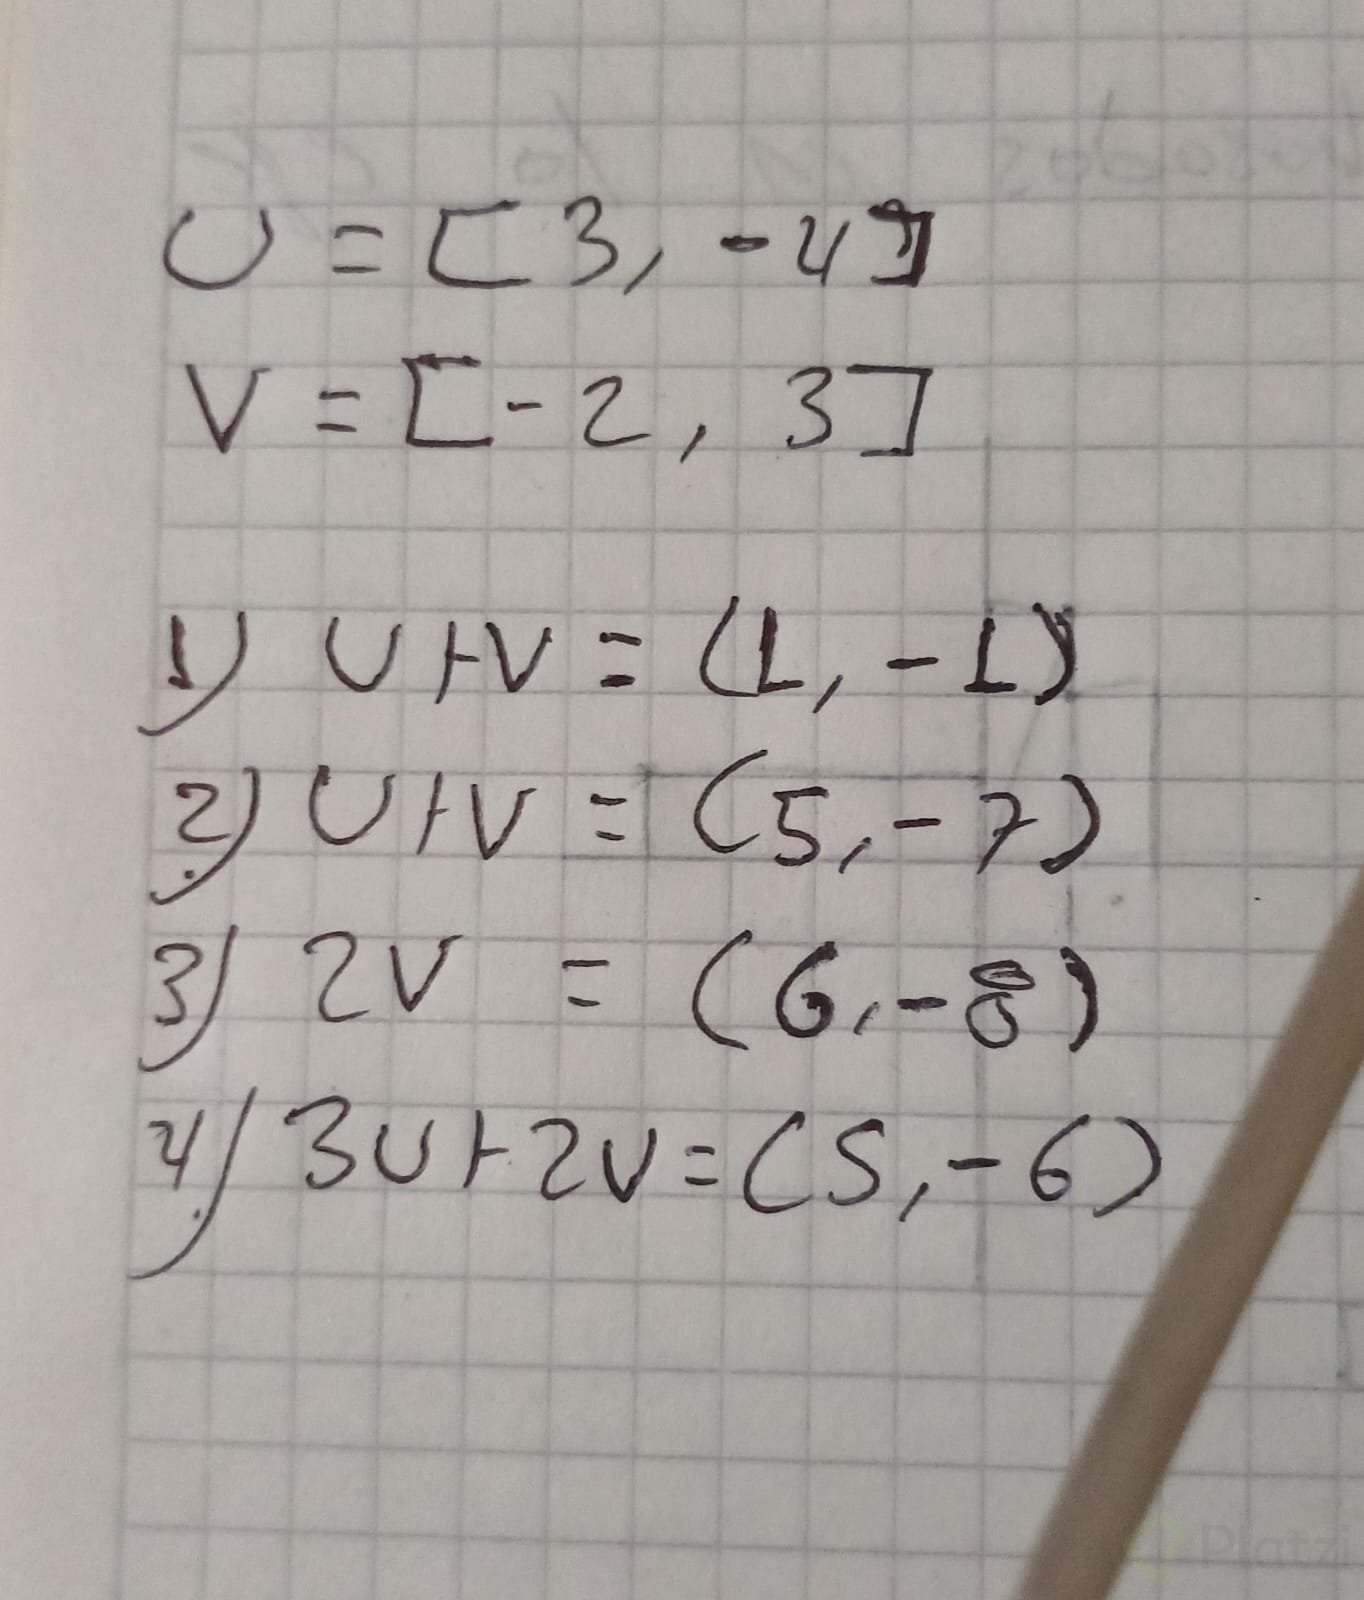 U = [3, -4]
V = [-2, 3]
1) U+V = (1, -1)
2) U+V = (5, -7)
3) 2V = (6, -8)
4) 3U+2V = (5, -6)
Platzi